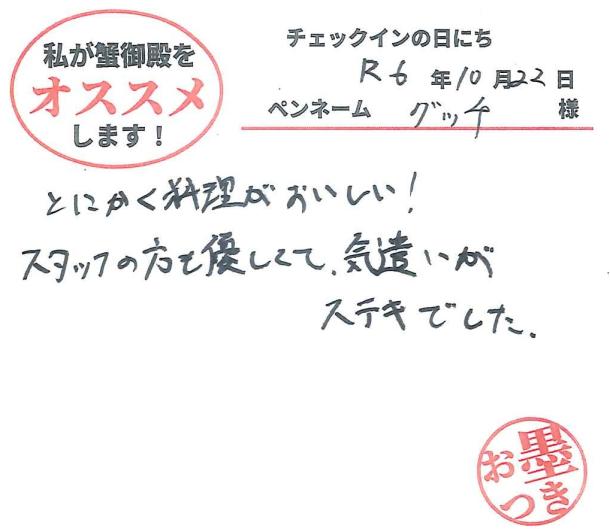 私が蟹御殿を
オススメ
します！
チェックインの日にち
R6年10月22日
ペンネーム グッチ 様
とにかく料理がおいしい!
スタッフの方も優しくて、気遣いが
ステキでした。
お墨つき